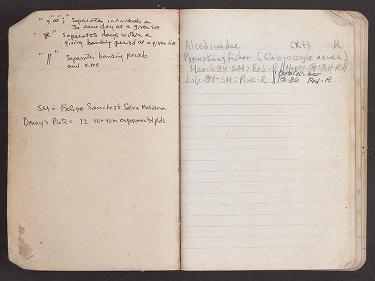 "," or ";" Separates individuals on
the same day at a given site
"*" Separates days within a
given banding period at a given site
"||" Separate banding periods
and sites
SM = Felipe Sanchez's Selva Madura
Denny's Plots = 12 40x40m experimental plots
Alcedinidae R
Pygmy Kingfisher (Chloroceryle aenea)
March 84-SM: Red-R ||
July-84-SM: Pink-R || Feb 86 Red-R